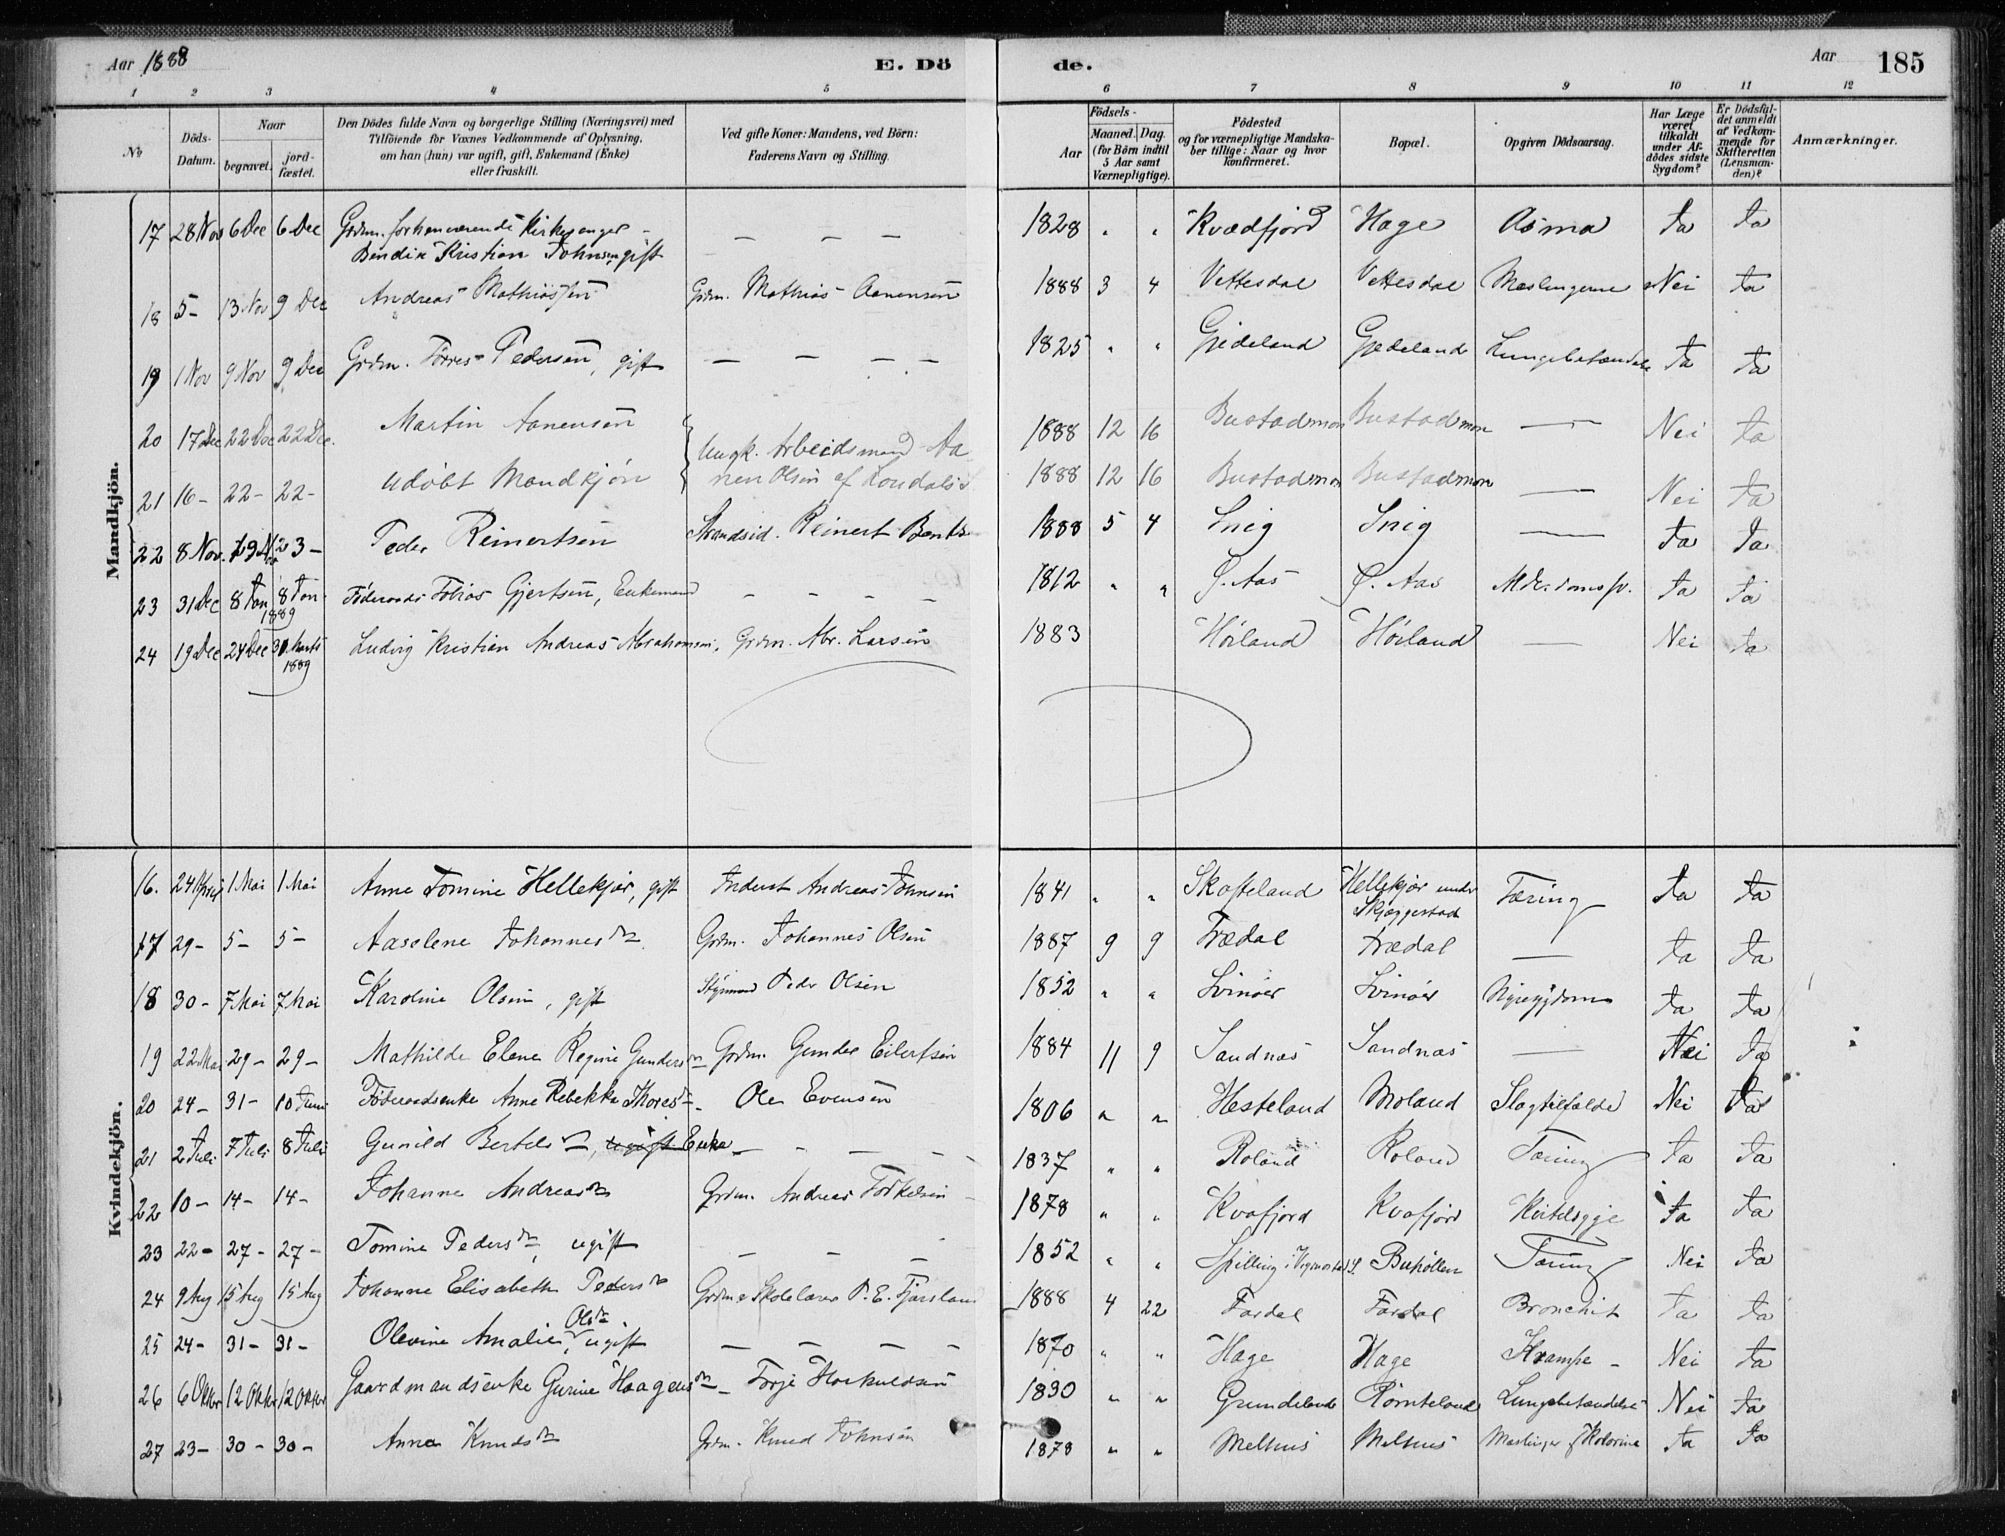 Aar 1888 E. Dö de. Aar 185
1 2 3 4 5 6 7 8 9 10 11 12
No Döds-Datum. Naar begravet. jordfæstet. Den Dödes fulde Navn og borgerlige Stilling (Næringsvei) med Tilföiende for Voxnes Vedkommende af Oplysning, om han (hun) var ugift, gift, Enkemand (Enke) eller fraskilt. Ved gifte Koner: Mandens, ved Börn: Faderens Navn og Stilling. Födsels- Aar Maaned. Dag. (for Börn indtil 5 Aar samt Værnepligtige). Födested og for værnepligtige Mandskaber tillige: Naar og hvor konfirmeret. Bopæl. Opgiven Dödsaarsag. Har Læge været tilkaldt under Afdödes sidste Sygdom? Er Dödsfaldet anmeldt af Vedkommende for Skifteretten (Lensmanden)? Anmærkninger.
Mandkjön.
17 28 Nov 6 Dec 6 Dec Grdm. forhenværende Kirkesanger Bendix Kristian Johnsen gift — — — 1828 " " Kvædfjord Hage Asma Ja Ja
18 5 - 13 Nov 9 Dec Andreas Mathiassen Grdm. Mathias Aanensen 1888 3 4 Vettesdal Vettesdal Mæslingerne Nei Ja
19 1 Nov 9 Nov 9 Dec Grdm. Tørres Pedersen, gift — — — — 1825 " " Gjedeland Gjedeland Lungebetændelse Ja Ja
20 17 Dec 22 Dec 22 Dec. Martin Aanensen Ungk. Arbeidsmand Aa 1888 12 16 Bustadmon Bustadmon — Nei Ja
21 16 - 22 - 22 - udøbt Mandkjøn nen Olsen af 1888 12 16 Bustadmon Bustadmon — Nei Ja
22 8 Nov. 23 - Peder Reinertsen Strandsid. Reinert Bents 1888 5 4 Snig Snig — Ja Ja
23 31 Dec 8 Jan 8 Jan 1889 Føderaads Tobias Gjertsen, Enkemand - - - - 1812 " " Ø. Aas Ø. Aas Alderdomssv. Ja Ja
24 19 Dec 24 Dec 31 Marts 1889 Ludvig Kristian Andreas Abrahamsen, Grdm. Abr. Larsen 1883 Høiland Høiland — Nei Ja
Kvindekjön.
16. 24 April 1 Mai 1 Mai Anne Tomine Hellekjær, gift Inderst Andreas Johnsen 1841 " " Skofteland Hellekjær under Skjæggestad Tæring Ja Ja
17 29 - 5 - 5 - Aaselene Johannesdtr Grdm. Johannes Olsen 1887 9 9 Trædal Trædal — Ja Ja
18 30 - 7 Mai 7 Mai Karoline Olsen, gift Styrmand Peder Olsen 1852 " " Svinøer Svinøer Nyresygdom Ja Ja
19 22 Mai 29 - 29 - Mathilde Elene Regine Gundersdtr Grdm. Gunder Eilertsen 1884 11 9 Sandnæs Sandnæs — Nei Ja
20 24 - 31 - 10 Juni Føderaadsenke Anne Rebekka Thoresdtr Ole Evensen 1806 " " Hesteland Moland Slagtilfælde Nei Ja
21 2 Juli 7 Juli 8 Juli Gunild Bertelsdtr, ugift Enke — — — — 1837 " " Roland Roland Tæring Ja Ja
22 10 - 14 - 14 - Johanne Andreasdtr Grdm. Andreas Torkelsen 1878 " " Kvafjord Kvafjord Ja Ja
23 22 - 27 - 27 - Tomine Pedersdtr, ugift — — — 1852 " " Spilling i Vegmostad S. Buhøllen Tæring Nei Ja
24 9 Aug 15 Aug 15 Aug Johanne Elisabeth Pedersdtr Grdm & Skolelærer P. E. Fjarsland 1888 4 22 Fardal Fardal Bronchit Ja Ja
25 24 - 31 - 31 - Olevine Amalie Olsdtr, ugift — — — — 1870 " " Hage Hage Krampe Nei Ja
26 6 Oktbr 12 Oktbr 12 Oktbr Gaardmandsenke Gurine Haagensdtr Terje Hoskuldsen 1830 " " Grundeland Rømteland Lungebetændelse Nei Ja
27 23 - 30 - 30 - Anna Knudsdtr Grdm. Knud Johnsen 1878 " " Melhus Melhus Mæslinger Ja Ja